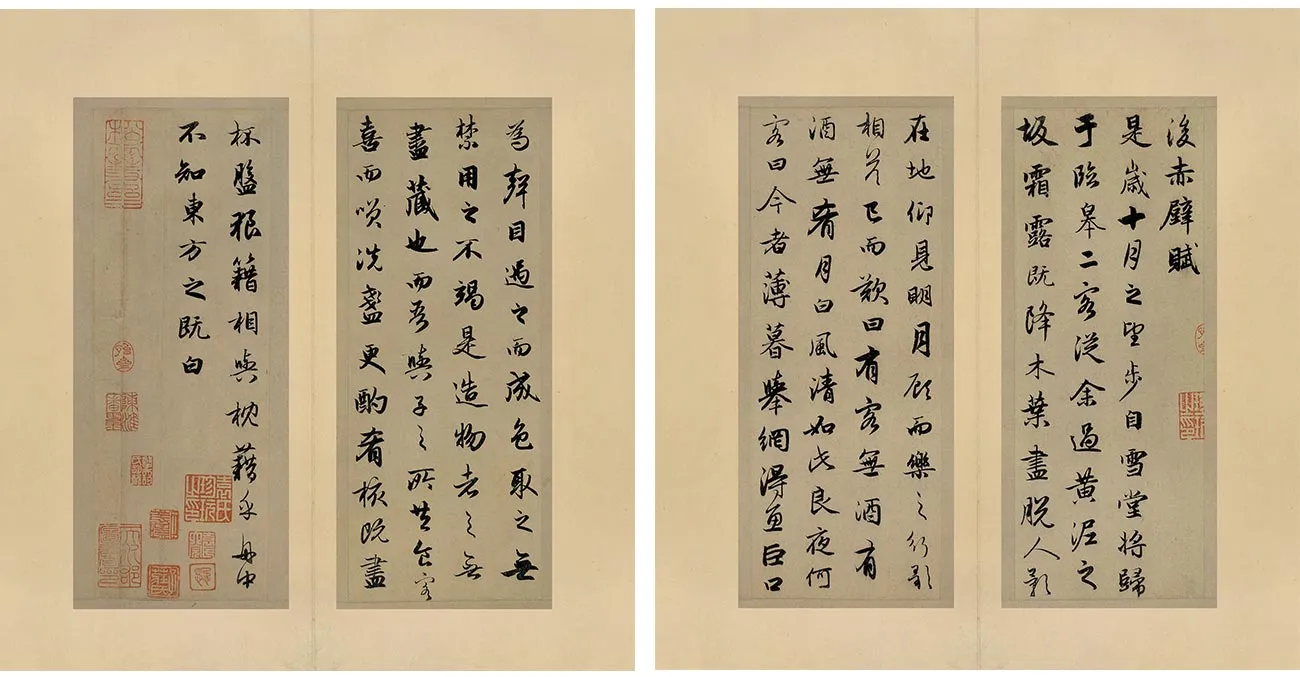 為聲目遇之而成色取之無
禁用之不竭是造物者之無
盡藏也而吾與子之所共食客
喜而笑洗盞更酌肴核既盡
杯盤狼籍相與枕藉乎舟中
不知東方之既白
後赤壁賦
是歲十月之望步自雪堂將歸
于臨皋二客從余過黃泥之
坂霜露既降木葉盡脫人影
在地仰見明月顧而樂之行歌
相荅已而歎曰有客無酒有
酒無肴月白風清如此良夜何
客曰今者薄暮舉網得魚巨口